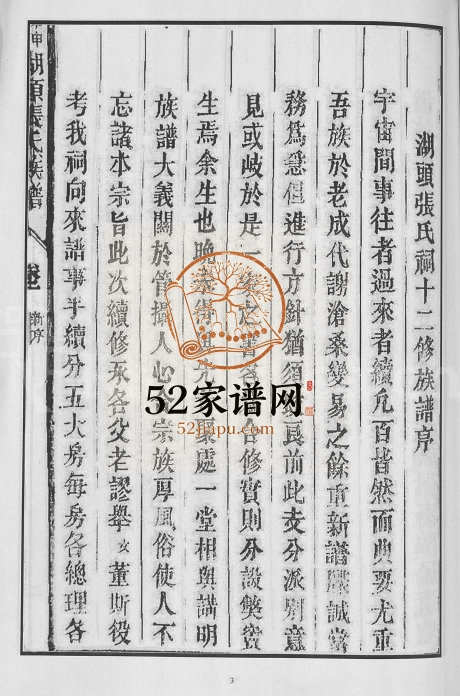 湖頭張氏祠十二修族譜序
宇宙間事往者過來者續凡百皆然而典要尤重
吾族於老成代謝滄桑變易之餘重新譜牒誠當
務爲急但進行方針猶須 良前此支分派別意
見或歧於是一 之譜各 修實則分設繁蠻
生焉余生也晚未得 處一堂相與講明
族譜大義關於管攝人心 宗族厚風俗使人不
忘諸本宗旨此次續修承各父老謬舉 董斯役
考我祠向來譜事手續分五大房每房各總理各
申 湖頭張氏族譜 新序
52家谱网
52jiapu.com
3